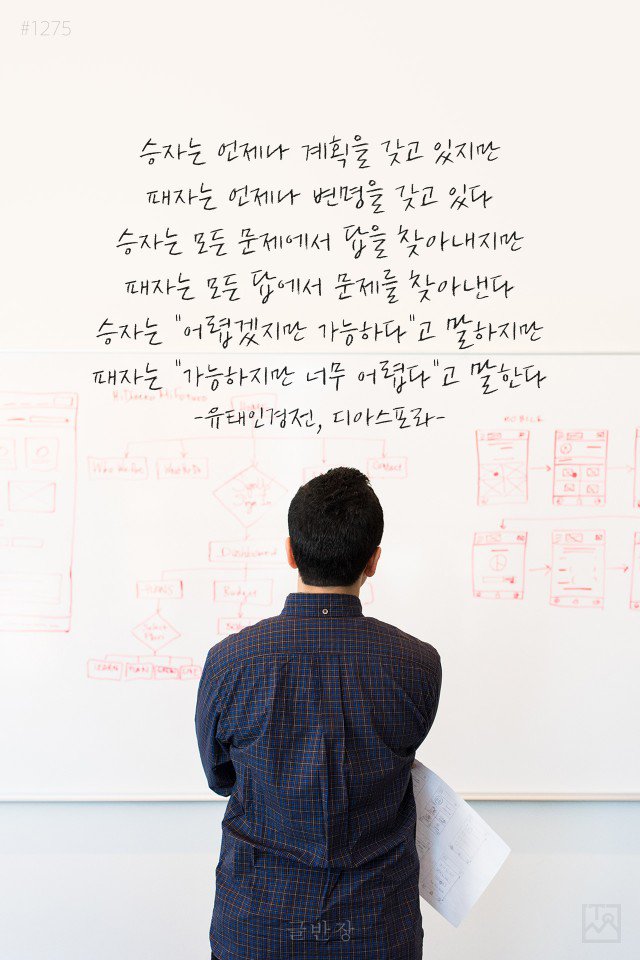 #1275
승자는 언제나 계획을 갖고 있지만
패자는 언제나 변명을 갖고 있다
승자는 모든 문제에서 답을 찾아내지만
패자는 모든 답에서 문제를 찾아낸다
승자는 "어렵겠지만 가능하다"고 말하지만
패자는 "가능하지만 너무 어렵다"고 말한다
-유태인경전, 디아스포라-
MOBILE
Contact
Sign In
Dashboard
PLANS
Budget
Select
Plan
LEARN
PLAN
글반장